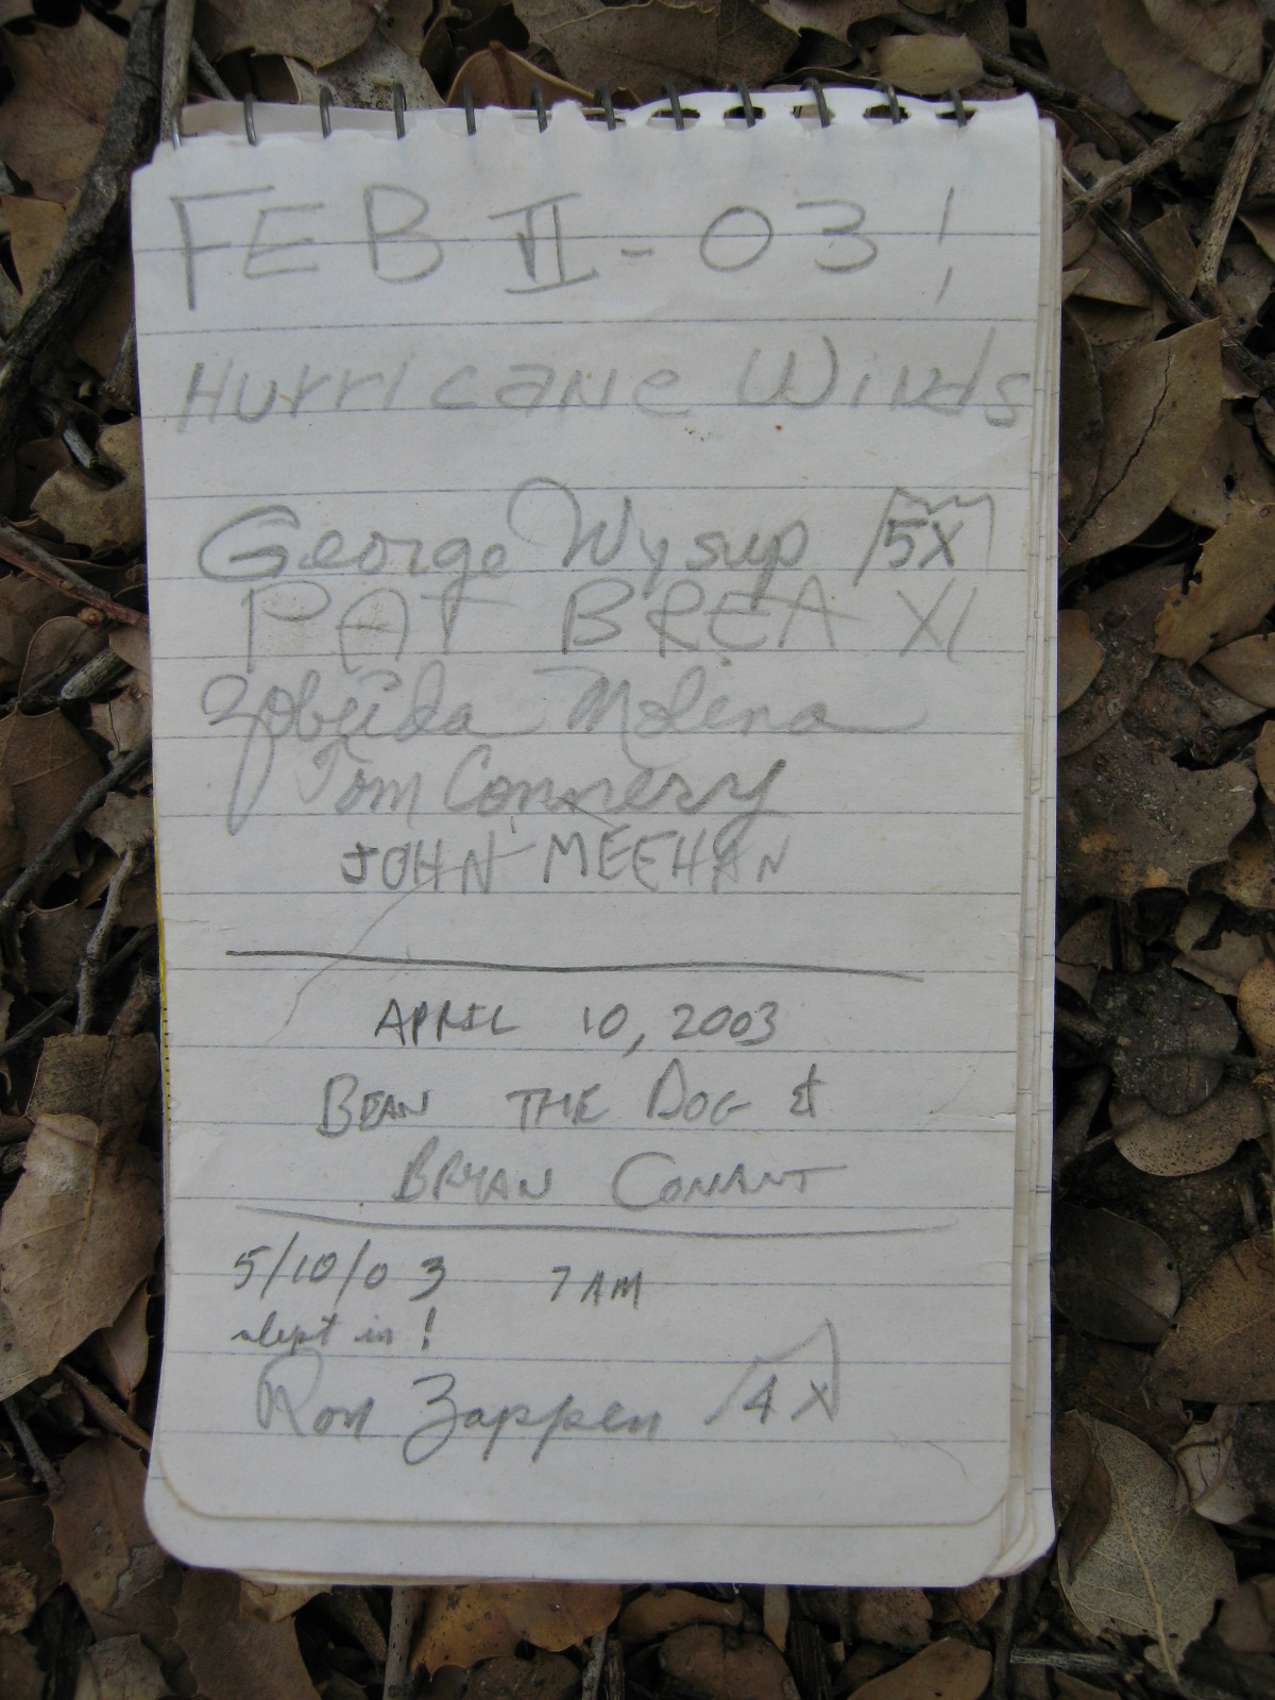 FEB II - 03!
Hurricane Winds
George Wysup 5X
PAT BREA X1
Zobeida Molina
Tom Connery
JOHN MEEHAN
APRIL 10, 2003
BEAN THE DOG &
BRYAN CONANT
5/10/03 7AM
slept in!
Ron Zappen 4X